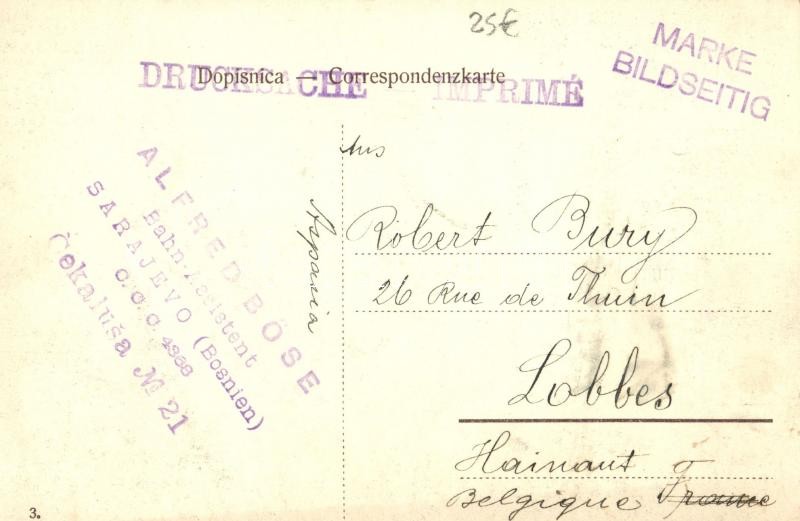 25€
MARKE
BILDSEITIG
Dopisnica — Correspondenzkarte
DRUCKSACHE — IMPRIMÉ
ALFRED BÖSE
Bahn-Assistent
SARAJEVO (Bosnien)
C.C.C. 4388
Čekaluša № 21
Robert Bury
26 Rue de Thuin
Lobbes
Hainaut
Belgique France
3.